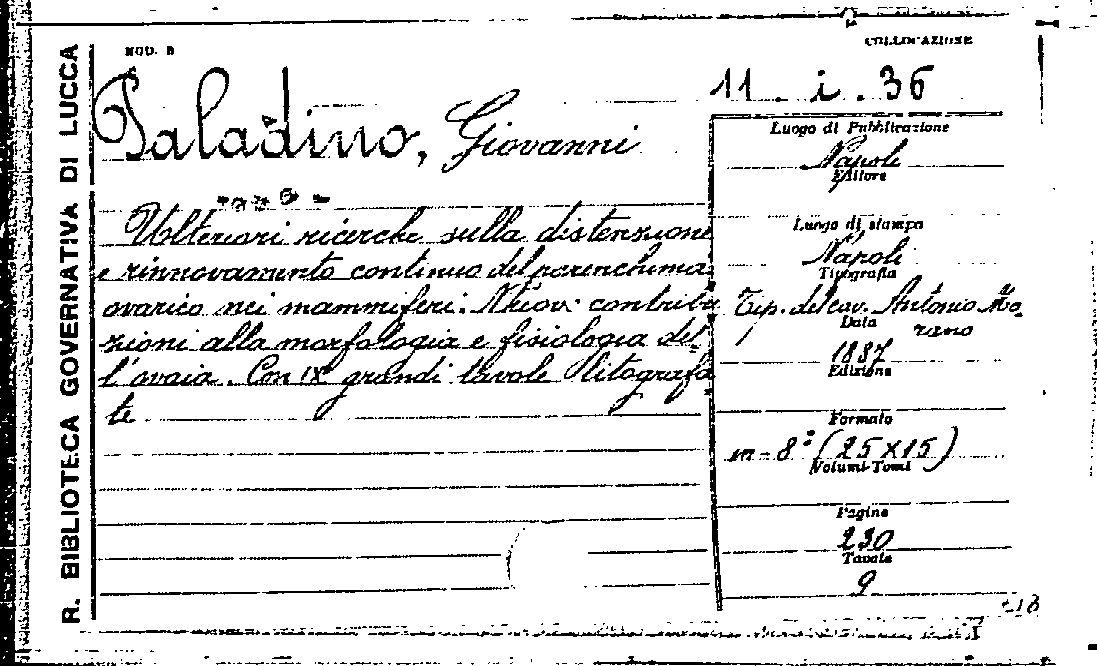 R. BIBLIOTECA GOVERNATIVA DI LUCCA
MOD. B
COLLOCAZIONE
11. i. 36
Paladino, Giovanni
Ulteriori ricerche sulla distenzione
e rinnovamento continuo del parenchima
ovarico nei mammiferi. Nuov: contribu
zioni alla morfologia e fisiologia del
l'ovaia. Con IX grandi tavole litografa
te
Luogo di Pubblicazione
Napoli
Editore
Luogo di stampa
Napoli
Tipografia
Tip. del cav. Antonio Mo
rano
Data
1887
Edizione
Formato
in-8° (25X15)
Volumi-Tomi
Pagine
230
Tavole
9